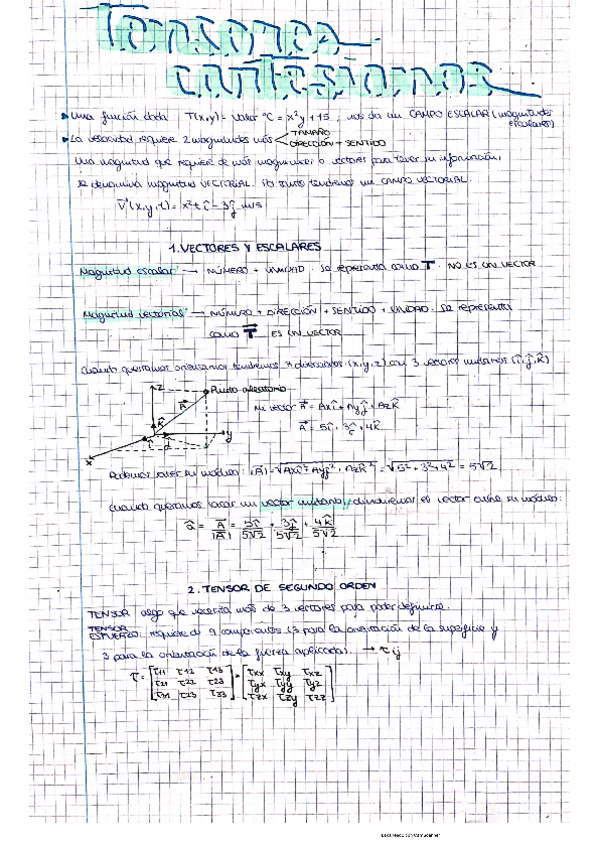 Tensores
cartesianos
Una función dada T(x,y) = Valor °C = x²y + 15, nos da un CAMPO ESCALAR (magnitudes
escalares)
La velocidad requiere 2 magnitudes más TAMAÑO
DIRECCIÓN + SENTIDO
Una magnitud que requiere de más magnitudes o vectores para tener su información,
se denomina magnitud VECTORIAL. Por tanto tendremos un CAMPO VECTORIAL.
V(x,y,t) = x²t î - 3ĵ m/s
1. VECTORES Y ESCALARES
Magnitud escalar → NÚMERO + UNIDAD. Se representa como T. NO ES UN VECTOR
Magnitud vectorial → NÚMERO + DIRECCIÓN + SENTIDO + UNIDAD. Se representa
como T ES UN VECTOR
Cuando queramos orientarnos tendremos 3 direcciones (x,y,z) con 3 vectores unitarios (î,ĵ,k̂)
z
Punto aleatorio
A
Mi vector A = Axî + Ayĵ + Azk̂
A = 5î + 3ĵ + 4k̂
k̂
î
ĵ
y
x
Podemos saber su módulo: |A| = √Axî² + Ayĵ² + Azk̂² = √5² + 3² + 4² = 5√2
Cuando queramos sacar un vector unitario, dividiremos el vector entre su módulo:
â = A/|A| = 5î/5√2 + 3ĵ/5√2 + 4k̂/5√2
2. TENSOR DE SEGUNDO ORDEN
TENSOR algo que necesita más de 3 vectores para poder definirse.
TENSOR
ESFUERZO: requiere de 9 componentes (3 para la orientación de la superficie y
3 para la orientación de la fuerza aplicada). → τij
τ = [τ11 τ12 τ13] = [τxx τxy τxz]
[τ21 τ22 τ23] [τyx τyy τyz]
[τ31 τ23 τ33] [τzx τzy τzz]